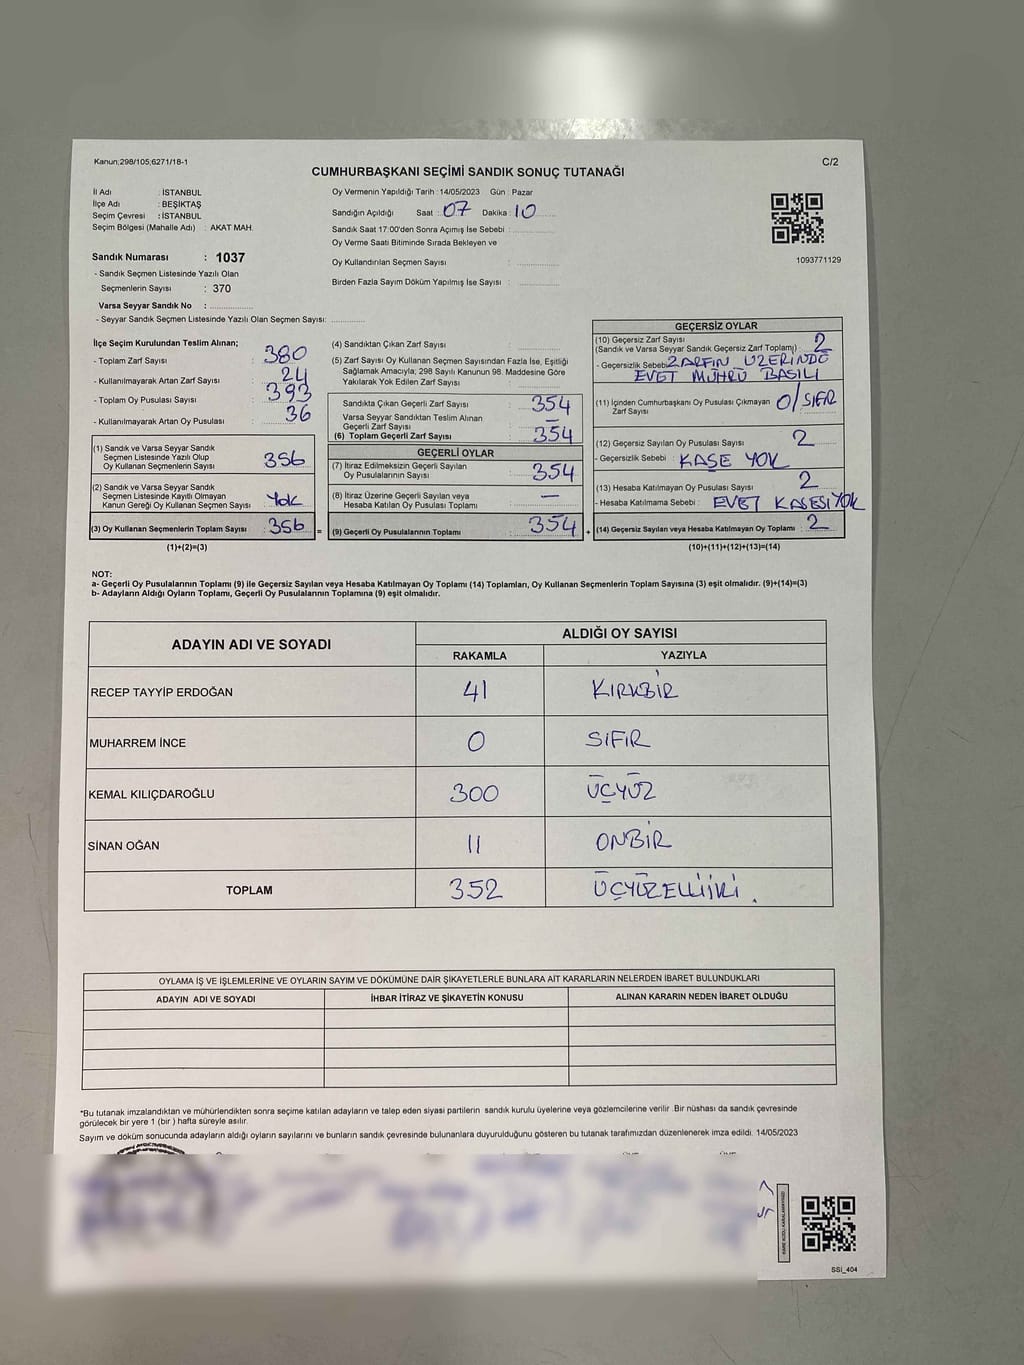 Kanun;298/105;6271/18-1
C/2
CUMHURBAŞKANI SEÇİMİ SANDIK SONUÇ TUTANAĞI
İl Adı : İSTANBUL
İlçe Adı : BEŞİKTAŞ
Seçim Çevresi : İSTANBUL
Seçim Bölgesi (Mahalle Adı) : AKAT MAH.
Sandık Numarası : 1037
- Sandık Seçmen Listesinde Yazılı Olan
Seçmenlerin Sayısı : 370
Varsa Seyyar Sandık No :
- Seyyar Sandık Seçmen Listesinde Yazılı Olan Seçmen Sayısı:
Oy Vermenin Yapıldığı Tarih : 14/05/2023 Gün : Pazar
Sandığın Açıldığı Saat : 07 Dakika : 10
Sandık Saat 17:00'den Sonra Açımış İse Sebebi :
Oy Verme Saati Bitiminde Sırada Bekleyen ve
Oy Kullandırılan Seçmen Sayısı :
Birden Fazla Sayım Döküm Yapılmış İse Sayısı :
1093771129
İlçe Seçim Kurulundan Teslim Alınan;
- Toplam Zarf Sayısı : 380
- Kullanılmayarak Artan Zarf Sayısı : 24
- Toplam Oy Pusulası Sayısı : 393
- Kullanılmayarak Artan Oy Pusulası : 36
(1) Sandık ve Varsa Seyyar Sandık
Seçmen Listesinde Yazılı Olup
Oy Kullanan Seçmenlerin Sayısı : 356
(2) Sandık ve Varsa Seyyar Sandık
Seçmen Listesinde Kayıtlı Olmayan
Kanun Gereği Oy Kullanan Seçmen Sayısı : YOK
(3) Oy Kullanan Seçmenlerin Toplam Sayısı : 356
(1)+(2)=(3)
(4) Sandıktan Çıkan Zarf Sayısı :
(5) Zarf Sayısı Oy Kullanan Seçmen Sayısından Fazla İse, Eşitliği
Sağlamak Amacıyla; 298 Sayılı Kanunun 98. Maddesine Göre
Yakılarak Yok Edilen Zarf Sayısı :
Sandıkta Çıkan Geçerli Zarf Sayısı : 354
Varsa Seyyar Sandıktan Teslim Alınan
Geçerli Zarf Sayısı : —
(6) Toplam Geçerli Zarf Sayısı : 354
GEÇERLİ OYLAR
(7) İtiraz Edilmeksizin Geçerli Sayılan
Oy Pusulalarının Sayısı : 354
(8) İtiraz Üzerine Geçerli Sayılan veya
Hesaba Katılan Oy Pusulası Toplamı : —
= (9) Geçerli Oy Pusulalarının Toplamı : 354 +
GEÇERSİZ OYLAR
(10) Geçersiz Zarf Sayısı
(Sandık ve Varsa Seyyar Sandık Geçersiz Zarf Toplamı) : 2
- Geçersizlik Sebebi: ZARFIN ÜZERİNDE
EVET MÜHRÜ BASILI
(11) İçinden Cumhurbaşkanı Oy Pusulası Çıkmayan
Zarf Sayısı : 0/SIFIR
(12) Geçersiz Sayılan Oy Pusulası Sayısı : 2
- Geçersizlik Sebebi : KAŞE YOK
(13) Hesaba Katılmayan Oy Pusulası Sayısı : 2
- Hesaba Katılmama Sebebi : EVET KAŞESİ YOK
(14) Geçersiz Sayılan veya Hesaba Katılmayan Oy Toplamı : 2
(10)+(11)+(12)+(13)=(14)
NOT:
a- Geçerli Oy Pusulalarının Toplamı (9) ile Geçersiz Sayılan veya Hesaba Katılmayan Oy Toplamı (14) Toplamları, Oy Kullanan Seçmenlerin Toplam Sayısına (3) eşit olmalıdır. (9)+(14)=(3)
b- Adayların Aldığı Oyların Toplamı, Geçerli Oy Pusulalarının Toplamına (9) eşit olmalıdır.
ADAYIN ADI VE SOYADI ALDIĞI OY SAYISI
RAKAMLA YAZIYLA
RECEP TAYYİP ERDOĞAN 41 KIRKBİR
MUHARREM İNCE 0 SIFIR
KEMAL KILIÇDAROĞLU 300 ÜÇYÜZ
SİNAN OĞAN 11 ONBİR
TOPLAM 352 ÜÇYÜZELLİİKİ.
OYLAMA İŞ VE İŞLEMLERİNE VE OYLARIN SAYIM VE DÖKÜMÜNE DAİR ŞİKAYETLERLE BUNLARA AİT KARARLARIN NELERDEN İBARET BULUNDUKLARI
ADAYIN ADI VE SOYADI İHBAR İTİRAZ VE ŞİKAYETİN KONUSU ALINAN KARARIN NEDEN İBARET OLDUĞU
*Bu tutanak imzalandıktan ve mühürlendikten sonra seçime katılan adayların ve talep eden siyasi partilerin sandık kurulu üyelerine veya gözlemcilerine verilir. Bir nüshası da sandık çevresinde
görülecek bir yere 1 (bir ) hafta süreyle asılır.
Sayım ve döküm sonucunda adayların aldığı oyların sayılarını ve bunların sandık çevresinde bulunanlara duyurulduğunu gösteren bu tutanak tarafımızdan düzenlenerek imza edildi. 14/05/2023
SSI_404